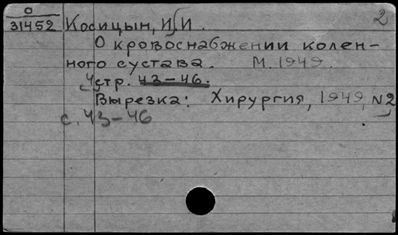 О
31452 Косицын, И. И. 2
О кровоснабжении колен-
ного сустава. М. 1949.
4 стр. 43-46.
Вырезка: Хирургия, 1949, N2
с. 43-46